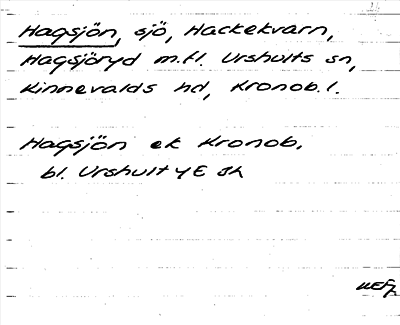 Hagsjön, sjö, Hackekvarn,
Hagsjöryd m.fl. Urshults sn,
Kinnevalds hd, Kronob. l.
Hagsjön ek Kronob.
bl. Urshult 4E